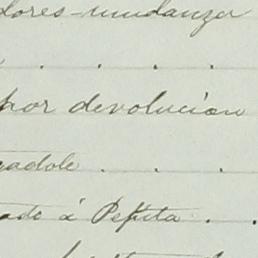 dores-mudanza
. . . .
por devolución
gadole . . .
ado á Pepita . .